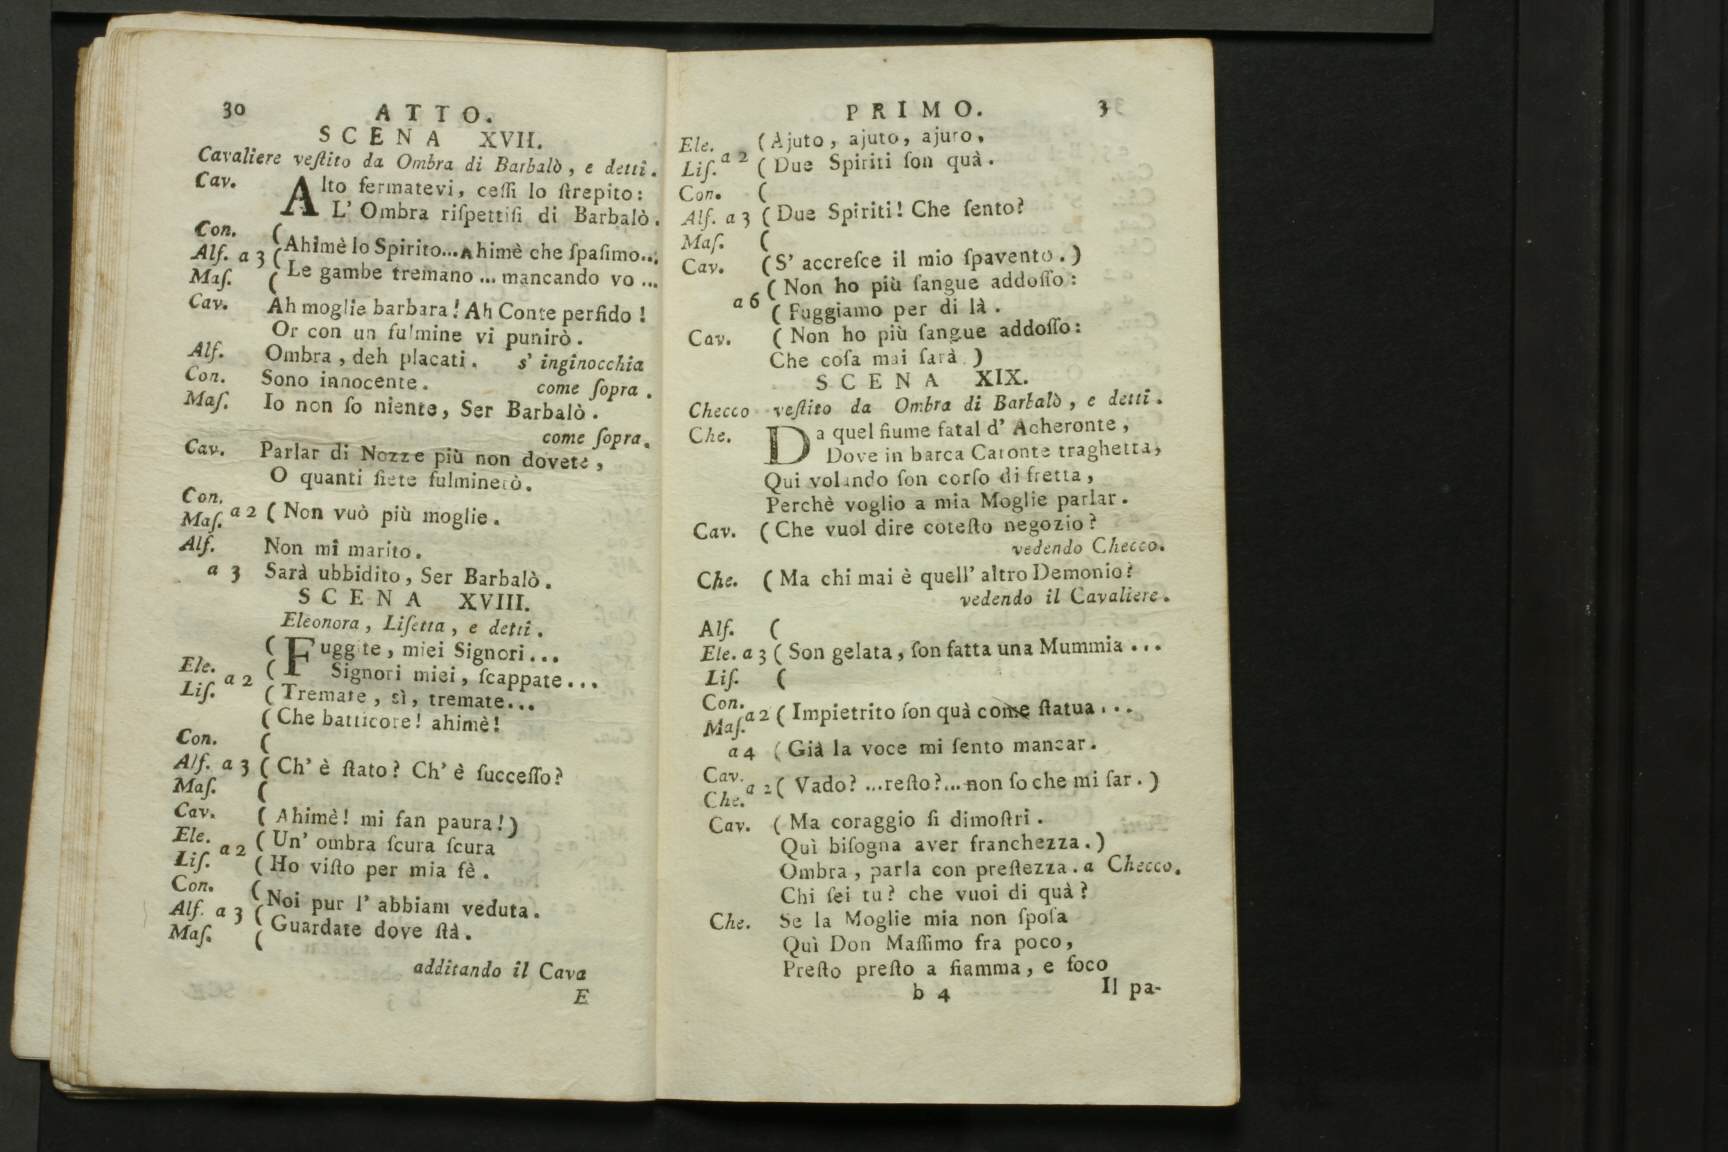 30 ATTO.
SCENA XVII.
Cavaliere veſtito da Ombra di Barbalò, e detti.
Cav. Alto fermatevi, ceſſi lo ſtrepito:
L' Ombra riſpettiſi di Barbalò.
Con. (
Alſ. a 3 (Ahimè lo Spirito...Ahimè che ſpaſimo...
Maſ. ( Le gambe tremano ... mancando vo ...
Cav. Ah moglie barbara! Ah Conte perfido!
Or con un fulmine vi punirò.
Alf. Ombra, deh placati. s' inginocchia
Con. Sono innocente. come ſopra.
Maſ. Io non ſo niente, Ser Barbalò.
come ſopra.
Cav. Parlar di Nozze più non dovete,
O quanti ſiete fulminerò.
Con.
Maſ. a 2 ( Non vuò più moglie.
Alf. Non mi marito.
a 3 Sarà ubbidito, Ser Barbalò.
SCENA XVIII.
Eleonora, Liſetta, e detti.
( Fuggite, miei Signori...
Ele. ( Signori miei, ſcappate...
Liſ. a 2 ( Tremate, sì, tremate...
( Che batticore! ahimè!
Con. (
Alf. a 3 ( Ch' è ſtato? Ch' è ſucceſſo?
Maſ. (
Cav. ( Ahimè! mi fan paura!)
Ele. a 2 ( Un' ombra ſcura ſcura
Liſ. ( Ho viſto per mia fè.
Con. (
Alf. a 3 ( Noi pur l' abbiam veduta.
Maſ. ( Guardate dove ſtà.
additando il Cava
E
PRIMO. 3
Ele. ( Ajuto, ajuto, ajuro,
Liſ. a 2 ( Due Spiriti ſon quà.
Con. (
Alſ. a 3 ( Due Spiriti! Che ſento?
Maſ. (
Cav. (S' accreſce il mio ſpavento.)
( Non ho più ſangue addoſſo:
a 6 ( Fuggiamo per di là.
Cav. ( Non ho più ſangue addoſſo:
Che coſa mai ſarà.)
SCENA XIX.
Checco veſtito da Ombra di Barbalò, e detti.
Che. Da quel fiume fatal d' Acheronte,
Dove in barca Caronte traghetta,
Qui volando ſon corſo di fretta,
Perchè voglio a mia Moglie parlar.
Cav. ( Che vuol dire coteſto negozio?
vedendo Checco.
Che. ( Ma chi mai è quell' altro Demonio?
vedendo il Cavaliere.
Alf. (
Ele. a 3 ( Son gelata, ſon fatta una Mummia ...
Liſ. (
Con.
Maſ. a 2 ( Impietrito ſon quà come ſtatua...
a 4 ( Già la voce mi ſento mancar.
Cav.
Che. a 2 ( Vado? ...reſto?... non ſo che mi far.)
Cav. ( Ma coraggio ſi dimoſtri.
Quì biſogna aver franchezza.)
Ombra, parla con preſtezza. a Checco.
Chi ſei tu? che vuoi di quà?
Che. Se la Moglie mia non ſpoſa
Quì Don Maſſimo fra poco,
Preſto preſto a fiamma, e foco
b 4 Il pa-